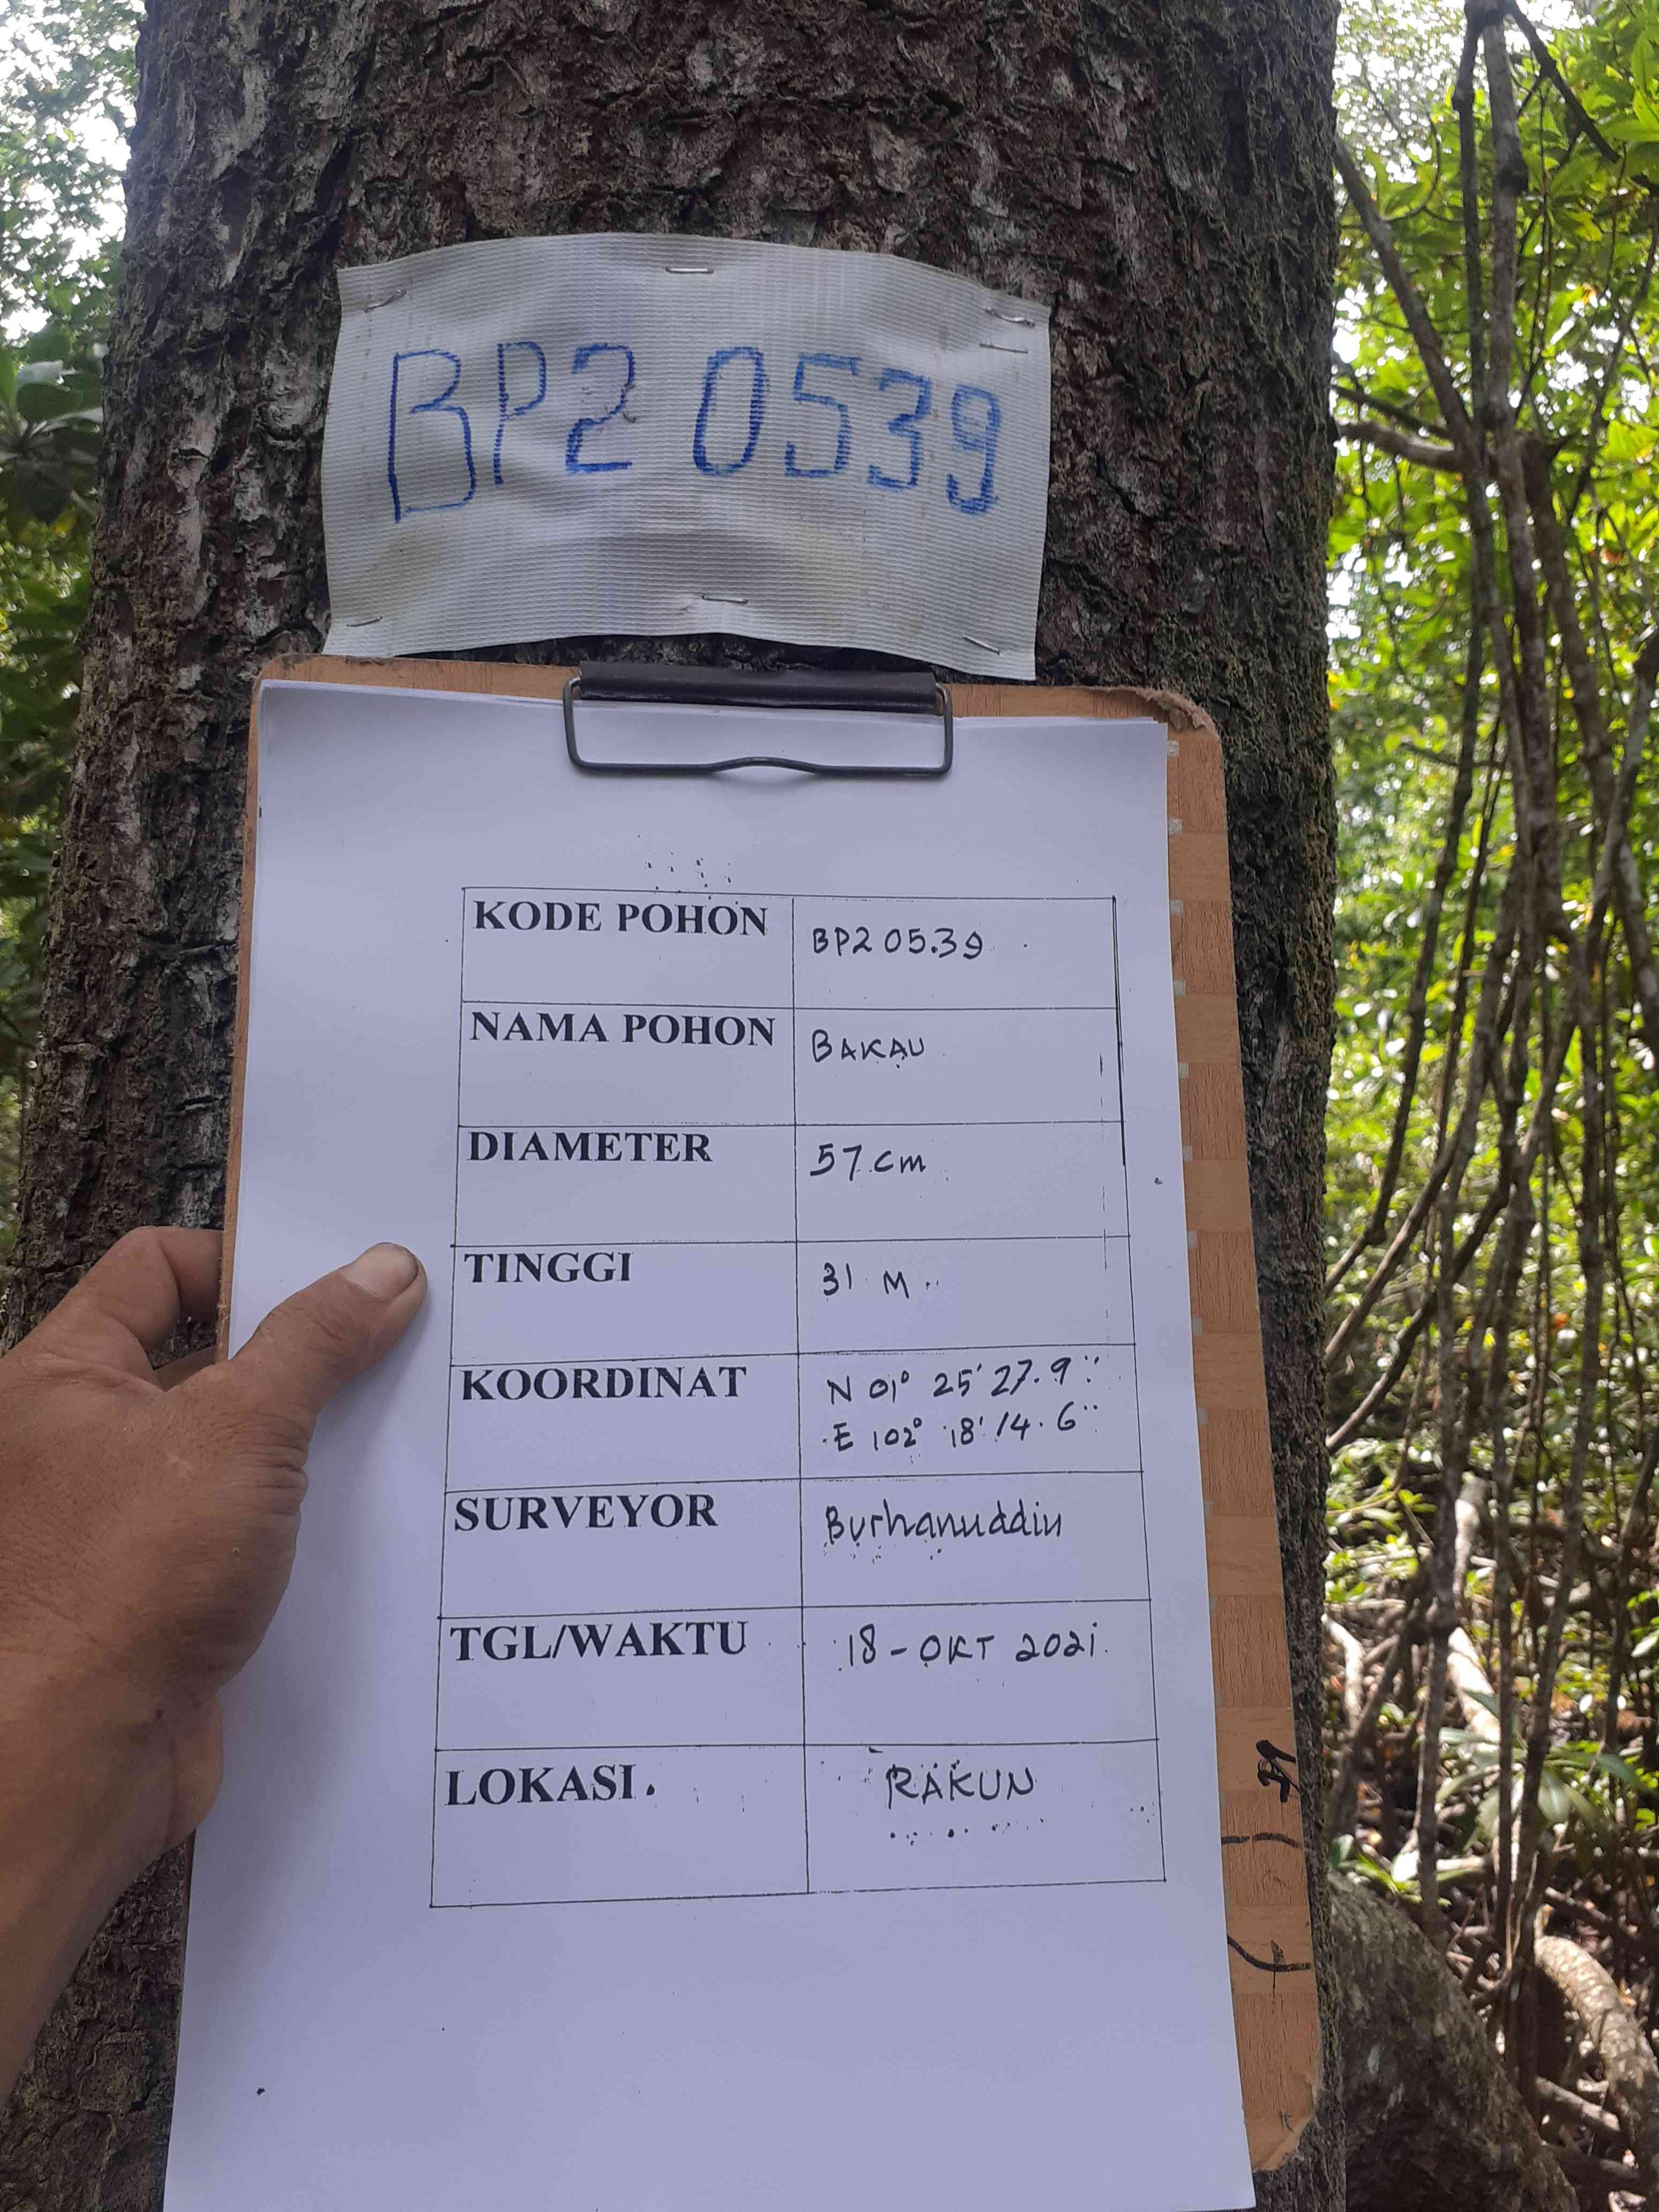 BP2 0539
KODE POHON BP2 05.39
NAMA POHON BAKAU
DIAMETER 57 cm
TINGGI 31 M
KOORDINAT N 01° 25' 27.9"
E 102° 18' 14.6"
SURVEYOR Burhanuddin
TGL/WAKTU 18 - OKT 2021
LOKASI. RAKUN